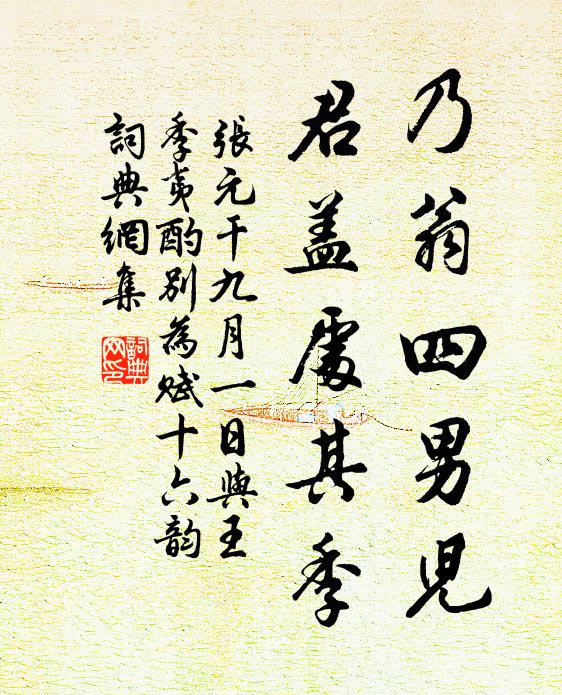 乃翁四男兒
君蓋處其季
張元干九月一日與王
季夷酌別為賦十六韵
詞典網集
詞典网印